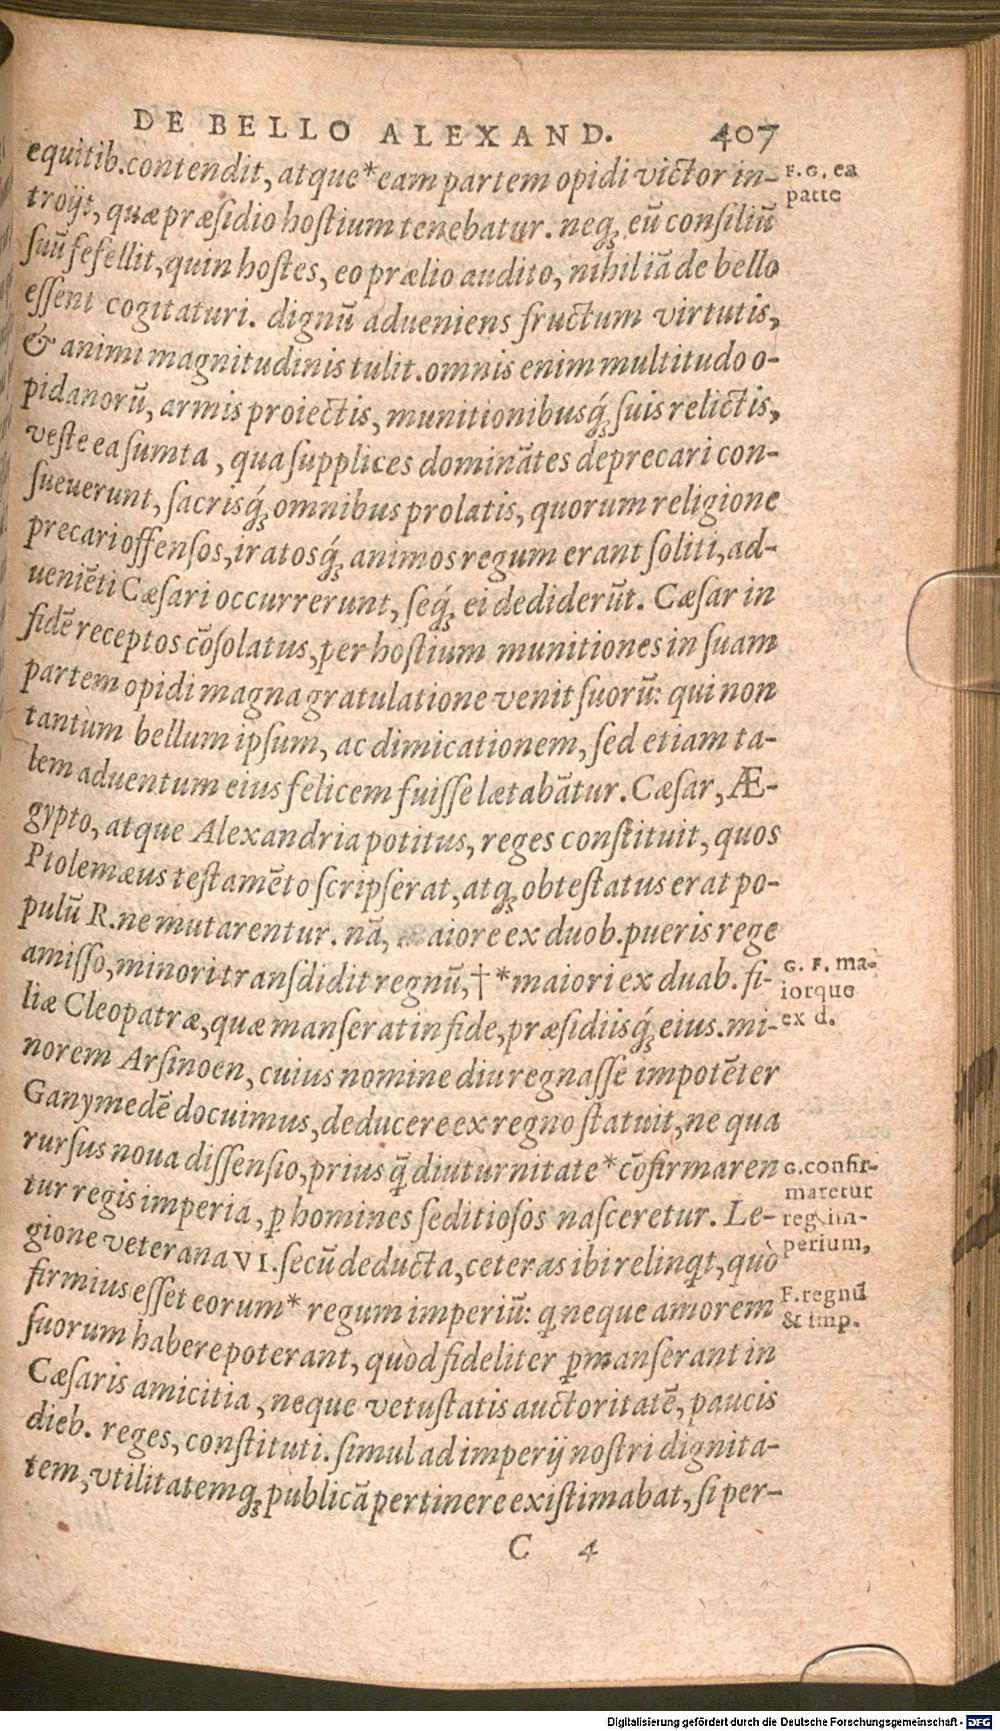 DE BELLO ALEXAND. 407
equitib. contendit, atque * eam partem opidi victor in-
troijt, quæ præsidio hostium tenebatur. neq; eũ consiliũ
suũ fefellit, quin hostes, eo prælio audito, nihil iã de bello
essent cogitaturi. dignũ adueniens fructum virtutis,
& animi magnitudinis tulit. omnis enim multitudo o-
pidanorũ, armis proiectis, munitionibusq́; suis relictis,
veste ea sumta, qua supplices dominãtes deprecari con-
sueuerunt, sacrisq́; omnibus prolatis, quorum religione
precari offensos, iratosq́; animos regum erant soliti, ad-
ueniẽti Cæsari occurrerunt, seq́; ei dediderũt. Cæsar in
fidẽ receptos cõsolatus, per hostium munitiones in suam
partem opidi magna gratulatione venit suorũ: qui non
tantùm bellum ipsum, ac dimicationem, sed etiam ta-
lem aduentum eius felicem fuisse lætabãtur. Cæsar, Æ-
gypto, atque Alexandria potitus, reges constituit, quos
Ptolemæus testamẽto scripserat, atq; obtestatus erat po-
pulũ R. ne mutarentur. nã, aiore ex duob. pueris rege
amisso, minori transdidit regnũ, † * maiori ex duab. fi-
liæ Cleopatræ, quæ manserat in fide, præsidiisq́; eius. mi-
norem Arsinoen, cuius nomine diu regnasse impotẽter
Ganymedẽ docuimus, deducere ex regno statuit, ne qua
rursus noua dissensio, prius q̃ diuturnitate * cõfirmaren
tur regis imperia, ꝑ homines seditiosos nasceretur. Le-
gione veterana VI. secũ deducta, ceteras ibi relinq̃t, quò
firmius esset eorum * regum imperiũ: q neque amorem
suorum habere poterant, quòd fideliter ꝑmanserant in
Cæsaris amicitia, neque vetustatis auctoritatẽ, paucis
dieb. reges, constituti. simul ad imperij nostri dignita-
tem, vtilitatemq; publicã pertinere existimabat, si per-
C 4
F. G. ea
parte
G. F. ma-
iorque
ex d.
G. confir-
maretur
reg. im-
perium,
F. regnũ
& imp.
Digitalisierung gefördert durch die Deutsche Forschungsgemeinschaft - DFG